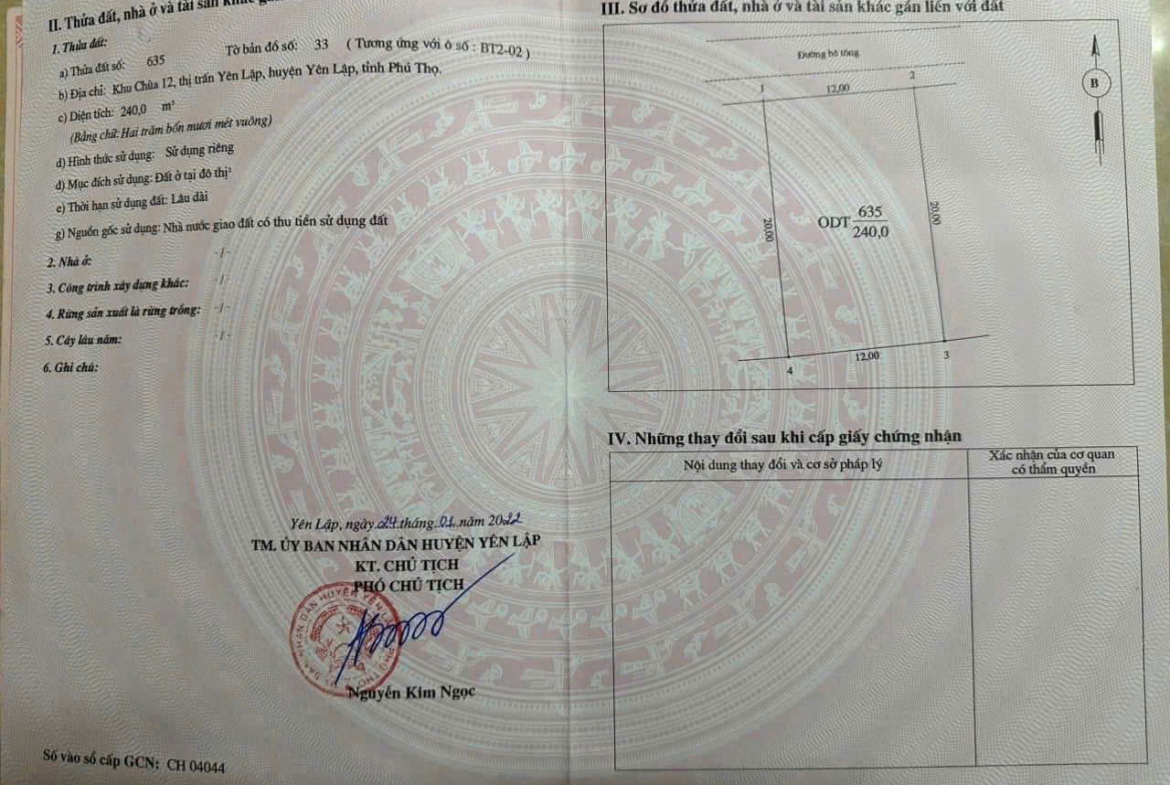 II. Thửa đất, nhà ở và tài sản khác gắn
1. Thửa đất:
a) Thửa đất số: 635 Tờ bản đồ số: 33 ( Tương ứng với ô số : BT2-02 )
b) Địa chỉ: Khu Chùa 12, thị trấn Yên Lập, huyện Yên Lập, tỉnh Phú Thọ.
c) Diện tích: 240,0 m²
(Bằng chữ: Hai trăm bốn mươi mét vuông)
d) Hình thức sử dụng: Sử dụng riêng
đ) Mục đích sử dụng: Đất ở tại đô thị
e) Thời hạn sử dụng đất: Lâu dài
g) Nguồn gốc sử dụng: Nhà nước giao đất có thu tiền sử dụng đất
2. Nhà ở: -/-
3. Công trình xây dựng khác: -/-
4. Rừng sản xuất là rừng trồng: -/-
5. Cây lâu năm: -/-
6. Ghi chú:
Yên Lập, ngày 24 tháng 01 năm 2022
TM. ỦY BAN NHÂN DÂN HUYỆN YÊN LẬP
KT. CHỦ TỊCH
PHÓ CHỦ TỊCH
Nguyễn Kim Ngọc
Số vào sổ cấp GCN: CH 04044
III. Sơ đồ thửa đất, nhà ở và tài sản khác gắn liền với đất
Đường bê tông
B
1
12,00
2
20,00
ODT 635
240,0
20,00
12,00
3
4
IV. Những thay đổi sau khi cấp giấy chứng nhận
Nội dung thay đổi và cơ sở pháp lý
Xác nhận của cơ quan
có thẩm quyền